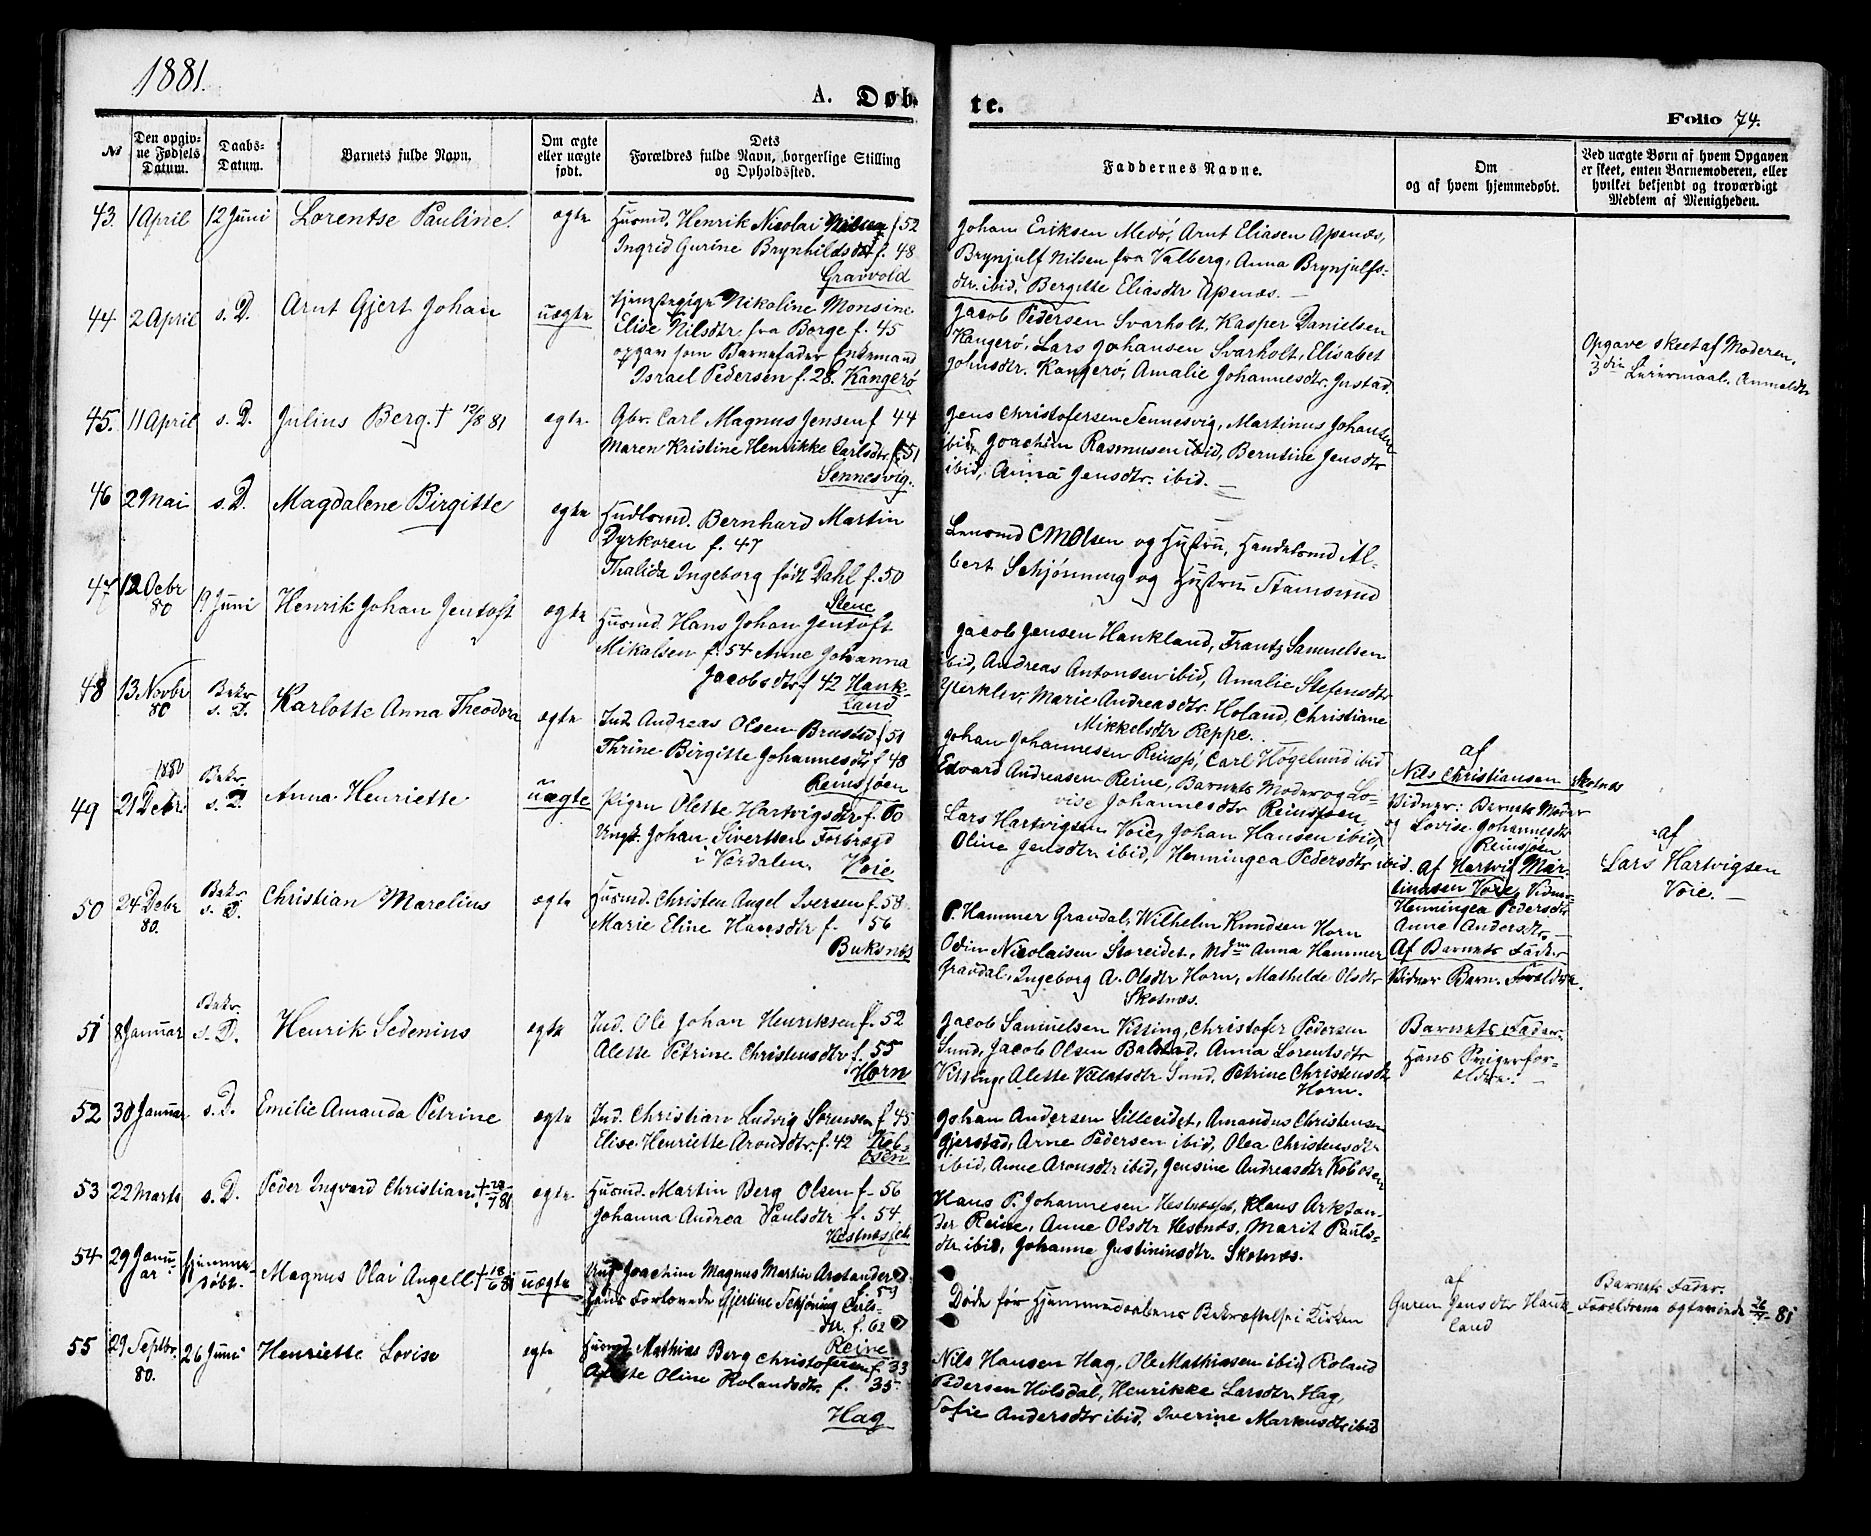 1881.
A. Døb-
te.
Folio 74.
№
Den opgiv-
ne Fødsels
Datum.
Daabs-
Datum.
Barnets fulde Navn.
Om ægte
eller uægte
født.
Dets
Forældres fulde Navn, borgerlige Stilling
og Opholdssted.
Faddernes Navne.
Om
og af hvem hjemmedøbt.
Ved uægte Børn af hvem Opgaven
er skeet, enten Barnemoderen, eller
hvilket bekjendt og troværdigt
Medlem af Menigheden.
43. 1 April 12 Juni Lorentse Pauline. ægte
Husmd. Henrik Nicolai Nilsen f. 52
Ingrid Gurine Brynhildsdtr f. 48
Gravvold
Johan Eriksen Medø, Arnt Eliasen Apenæs,
Brynjulf Nilsen fra Valberg, Anna Brynjulfs-
dtr. ibid, Bergitte Eliasdtr Apenæs.
44 2 April s. D. Arnt Gjert Johan uægte
Nikoline Monsine
Elise Nilsdtr fra Borge f. 45
opgav som Barnefader Enkemand
Israel Pedersen f. 28. Kangerø
Jacob Pedersen Svarholt, Kasper Danielsen
Kangerø, Lars Johansen Svarholt, Elisabet
Johnsdtr. Kangerø, Amalie Johannesdtr. Justad.
Opgave skeet af Moderen.
3die Leiermaal. Anmeldt
45. 11 April s. D. Julius Berg. † 12/8 81 ægte
Gbr. Carl Magnus Jensen f 44
Maren Kristine Henrikke Carlsdtr f. 51
Sennesvig.
Jens Christofersen Sennesvig, Martinus Johansen
ibid, Joachim Rasmusen ibid, Berntine Jensdtr
ibid, Anna Jensdtr. ibid.
46 29 Mai s. D. Magdalene Birgitte ægte
Hndlsmd. Bernhard Martin
Dyrkoren f. 47
Thalida Ingeborg født Dahl f. 50
Stene
Lensmd C M Olsen og Hustru, Handelsmd Al-
bert Schjønning og Hustru Stamsund
47 12 Debr 80 19 Juni Henrik Johan Jentoft ægte
Husmd. Hans Johan Jentoft
Mikalsen f. 54 Anne Johanna
Jacobsdtr f 42 Hauk-
land
Jacob Jensen Haukland, Frantz Samuelsen
ibid, Andreas Antonsen ibid, Amalie Stefensdtr
Marie Andreasdtr. Holand, Christiane
Mikkelsdtr Reppe.
48 13 Novbr 80 Bekr. s. D. Karlotte Anna Theodora ægte
Ind. Andreas Olsen Brusted f 51
Thrine Birgitte Johannesdtr f 48
Reinsjøen
Johan Johannesen Reinssjø, Carl Høgelund ibid
Edvard Andreasen Reine, Barnets Moder og Lo-
vise Johannesdtr Reinsjøen.
af
Nils Christiansen Skotnæs
Vidner: Barnets Moder
og Lovise Johannesdtr
Reinsjøen
49 1880 21 Debr. Bekr. s. D. Anna Henriette uægte
Pigen Olette Hartvigsdtr f. 60
Ungk. Johan Sivertsen Forbregd
i Verdalen. Voie
Lars Hartvigsen Voie, Johan Hansen ibid,
Oline Jensdtr ibid, Henningea Pedersdtr ibid.
Af Hartvig Mar-
tinusen Voie, Vidne:
Henningea Pedersdtr
Anne Andersdtr
af
Lars Hartvigsen
Voie.
50 24 Debr 80. Bekr. s. D. Christian Marelius ægte
Husmd. Christen Angel Iversen f. 58
Marie Eline Hansdtr f. 56
Buksnæs
P. Hammer Gravdal, Wilhelm Knudsen Horn
Odin Nicolaisen Storeidet, Mdm Anna Hammer
Gravdal, Ingeborg A. Olsdtr Horn, Mathilde Olsdtr
Skotnæs.
Af Barnets Fader
Vidner Barn. Forældre.
51 8 Januar Bekr. s. D. Henrik Sedenius ægte
Ind. Ole Johan Henriksen f. 52
Alette Petrine Christensdtr f. 55
Horn
Jacob Samuelsen Vitting, Christofer Pedersen
Sund, Jacob Olsen Balstad, Anna Lorentsdtr
Vitting, Alette Valatsdtr Sund, Petrine Christensdtr
Horn.
Barnets Fader
Hans Sviger for-
ældre.
52 30 Januar s. D. Emilie Amanda Petrine ægte
Ind. Christian Ludvig Sørensen f 45
Elise Henriette Aronsdtr. f. 42 Kob-
osen
Johan Andersen Lilleeidet, Amandus Christensen
Gjerstad, Arne Pedersen ibid, Olea Christensdtr
ibid, Anne Aronsdtr ibid, Jensine Andreasdtr Kobosen
53 22 Marts s. D. Peder Ingvard Christian † 28/7 81 ægte
Husmd. Martin Berg Olsen f. 56
Johanna Andrea Paulsdtr f. 54
Hestnæsset
Hans P. Johannesen Hestnæsset, Klaus Arktan-
der Reine, Anne Olsdtr Hestnæs, Marit Pauls-
dtr. ibid, Johanna Justinusdtr. Skotnæs.
54 29 Janu-
ar Hjemme-
døbt. Magnus Olai Angell † 18/6 81 uægte
Ungk. Joachim Magnus Martin Arctander f. 59
hans Forlovede Gjertine Schjøning Carls-
dtr. f. 62
Reine
Døde før Hjemmedaabens Bekræftelse i Kirken
af
Guren Jensdtr Hauk-
land
Barnets Fader.
Forældrene ægteviede 26/4 81
55 29 Septbr. 80. 26 Juni Henriette Lovise ægte
Husmd Mathias Berg Christofersen f. 33
Alette Oline Rolandsdtr. f. 35
Hag
Nils Hansen Hag, Ole Mathiassen ibid, Roland
Pedersen Holsdal, Henrikke Larsdtr Hag,
Sofie Andersdtr ibid, Iverine Markusdtr ibid